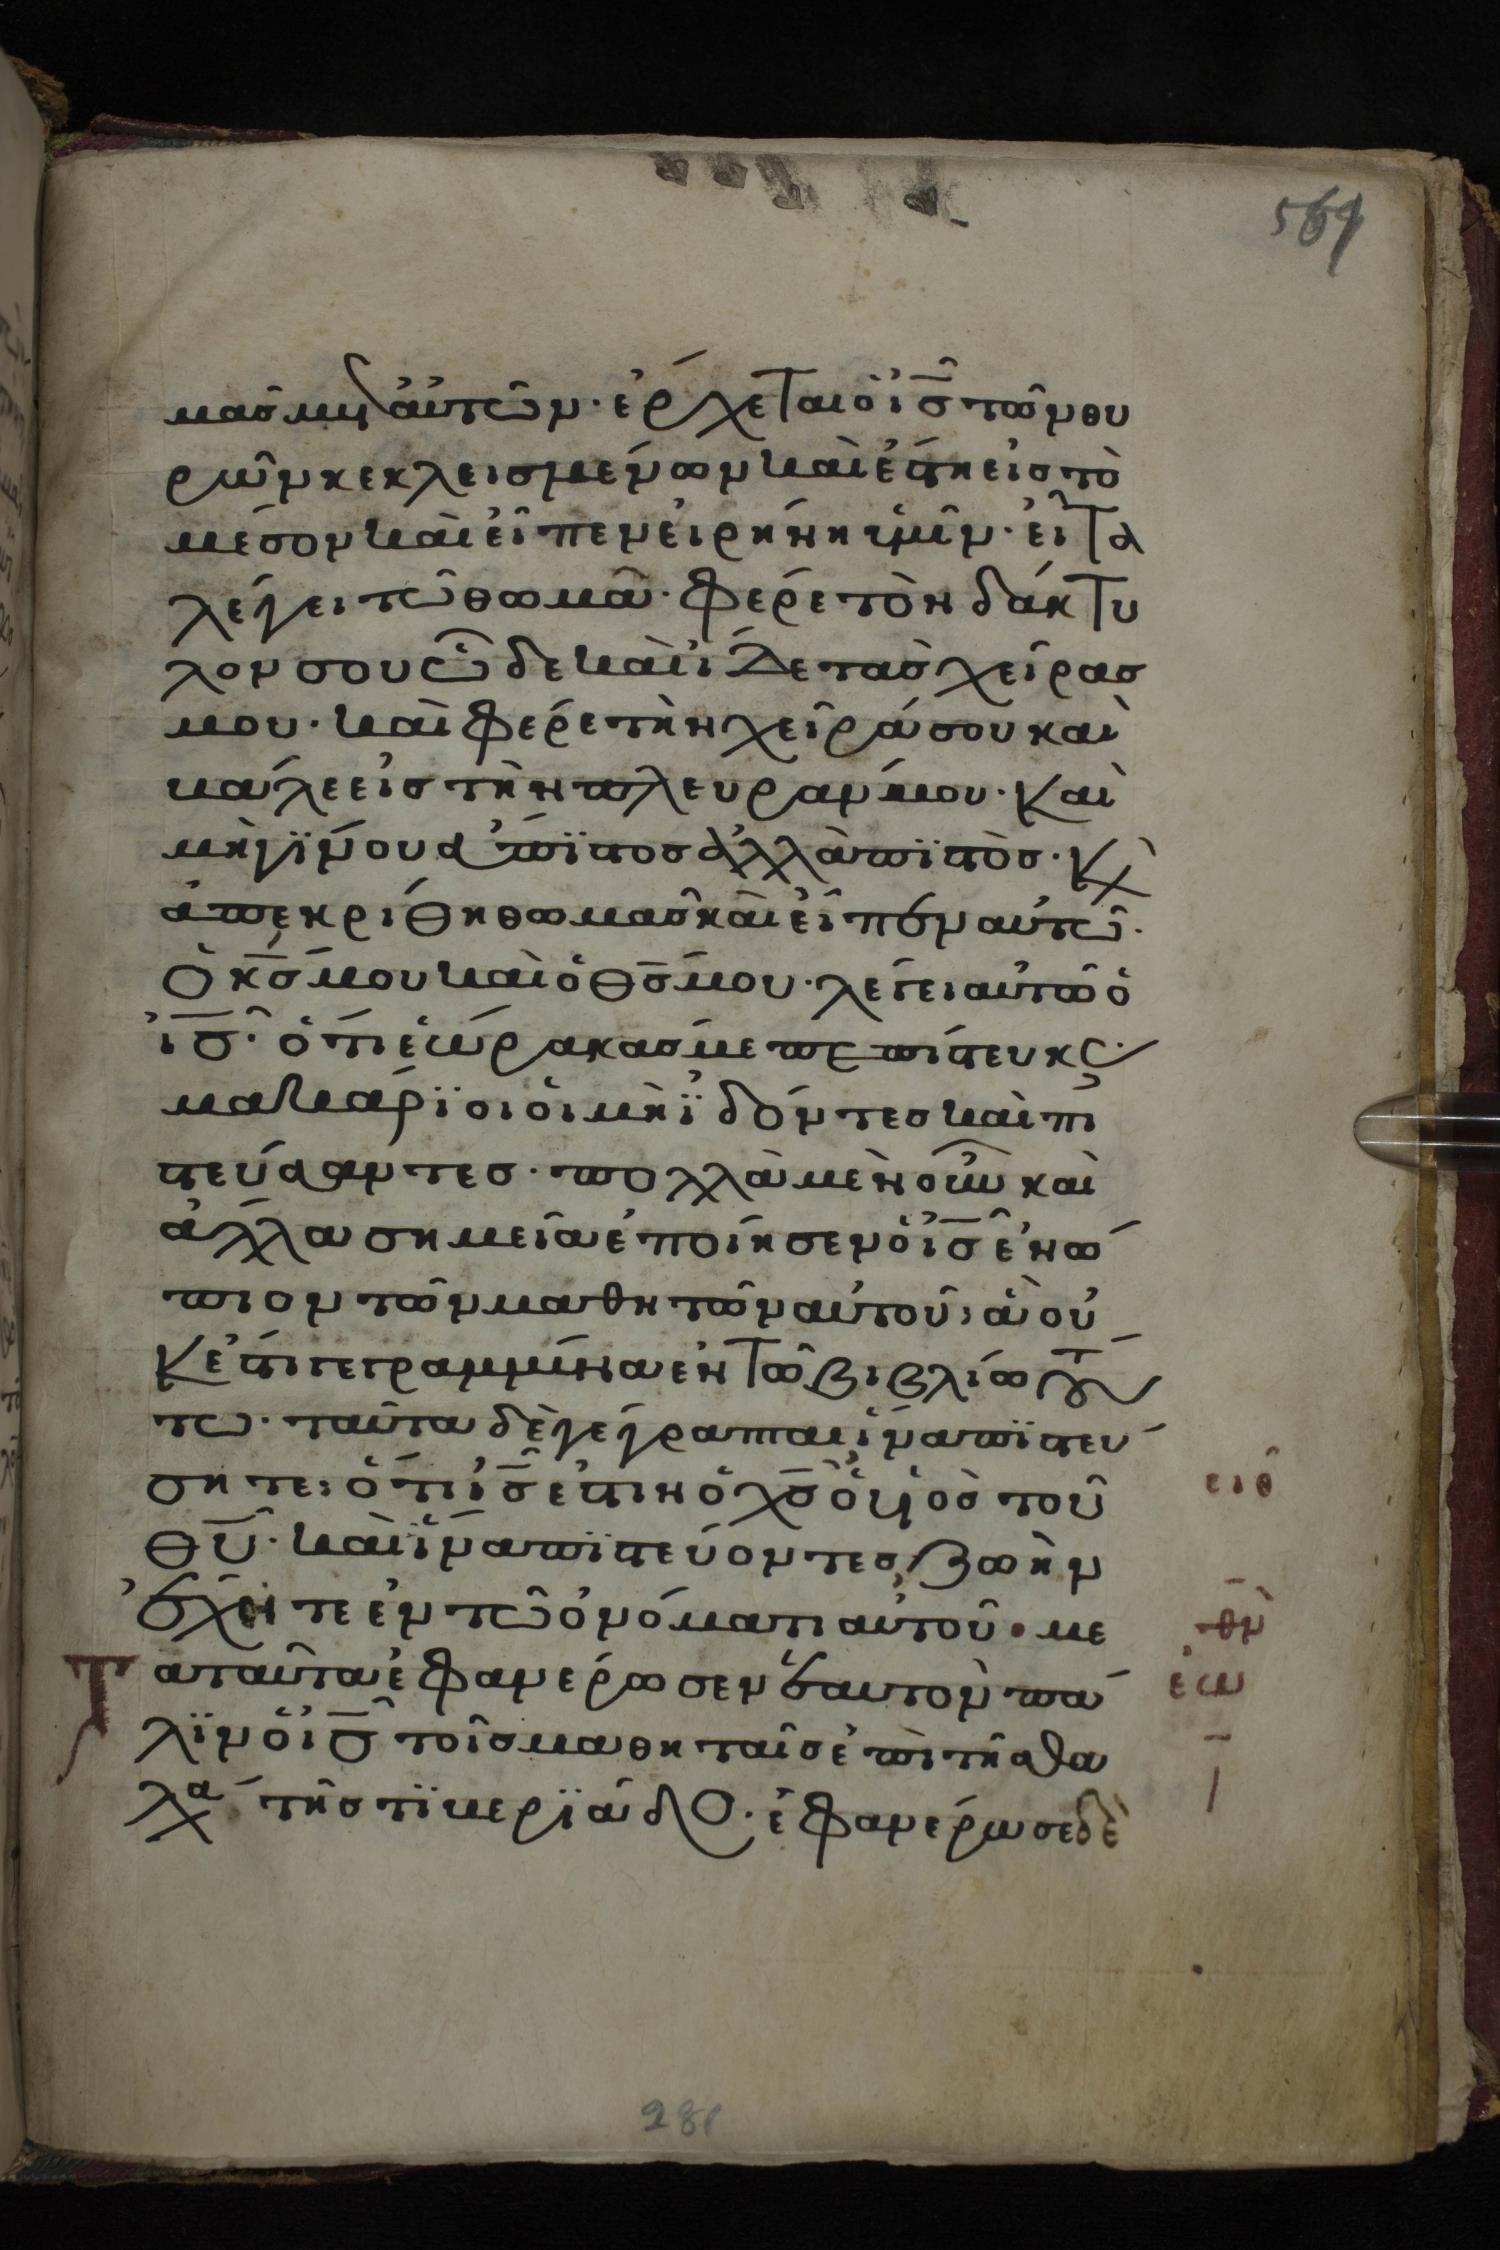 561
μασ μετ αὐτῶν· ἔρχεται ὁ ισ τῶν θυ
ρῶν κεκλεισμένων καὶ ἔστη εἰσ τὸ
μέσον καὶ εἶπεν εἰρήνη ὑμῖν· εἶτα
λέγει τῶ θωμᾶ· φέρε τὸν δάκτυ
λον σου ὧδε καὶ ἴδε τὰσ χεῖρασ
μου· καὶ φέρε τὴν χεῖρά σου καὶ
βάλε εἰσ τὴν πλευράν μου· καὶ
μὴ γίνου ἄπϊστοσ ἀλλὰ πϊστὸσ· κ
ἀπεκρίθη θωμᾶσ καὶ εἶπεν αὐτῶ·
Ὁ κσ μου καὶ ὁ θσ μου· λέγει αὐτῶ ὁ
ισ· ὅτι ἑώρακασ με πεπίστευκασ·
μακάρϊοι οἱ μὴ ἰδόντεσ καὶ πι
στεύσαντεσ· πολλὰ μὲν οὖν καὶ
ἄλλα σημεῖα ἐποίησεν ὁ ισ ἐνώ
πιον τῶν μαθητῶν αὐτοῦ, ἃ οὐ
κ ἔστι γεγραμμένα ἐν τῶ βιβλίω τού
τω· ταῦτα δὲ γέγραπται ἵνα πϊστεύ
σητε, ὅτι ισ ἐστιν ὁ χσ ὁ υἱὸσ τοῦ
θυ· καὶ ἵνα πϊστεύοντεσ ζωὴν
ἔχητε ἐν τῶ ὀνόματι αὐτοῦ· με
Τὰ ταῦτα ἐφανέρωσεν ἑαυτὸν πά
λϊν ὁ ισ τοῖσ μαθηταῖσ ἐπὶ τῆσ θα
λα τῆσ τϊβερϊάδοσ· ἐφανέρωσε δὲ
281